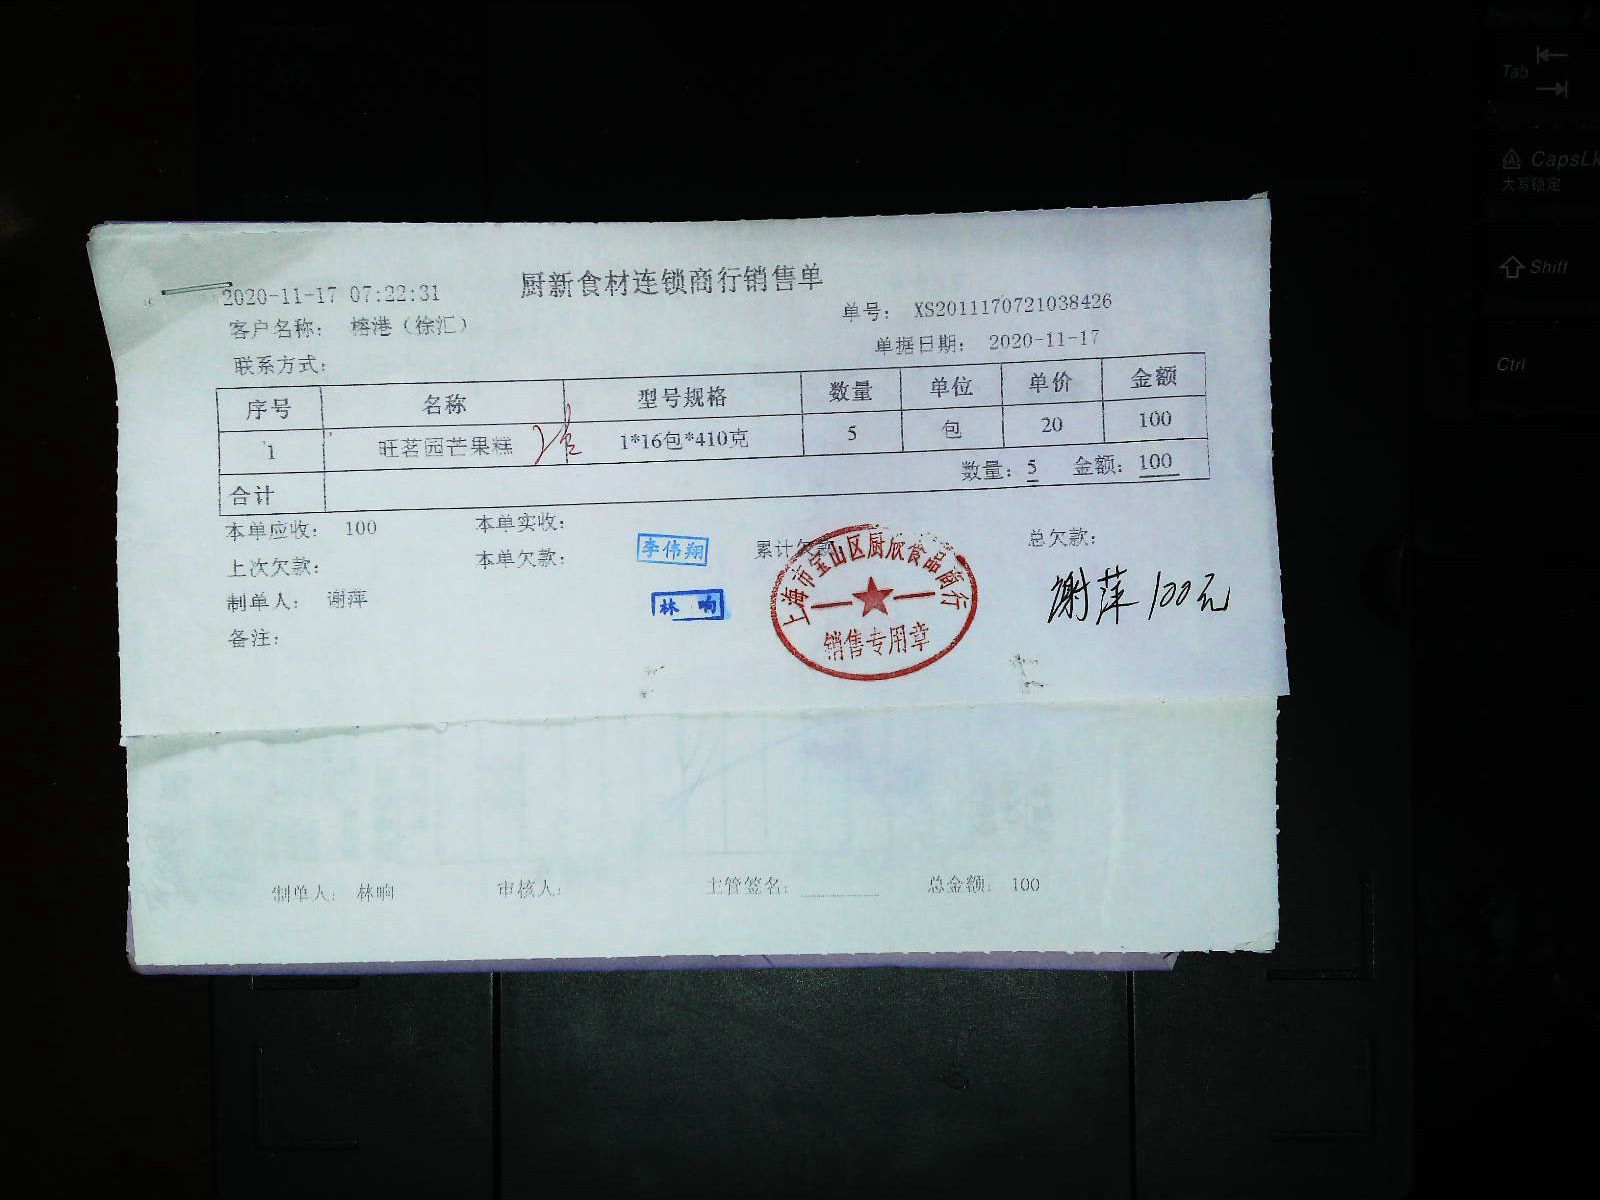 厨新食材连锁商行销售单
2020-11-17 07:22:31
单号： XS2011170721038426
客户名称： 榕港（徐汇）
单据日期： 2020-11-17
联系方式：
序号 名称 型号规格 数量 单位 单价 金额
1 旺茗园芒果糕 1*16包*410克 5 包 20 100
合计 数量：5 金额：100
本单应收： 100 本单实收：
上次欠款： 本单欠款： 累计欠款 总欠款：
李伟翔
制单人： 谢萍
林响
备注：
上海市宝山区厨欣食品商行
销售专用章
谢萍 100元
制单人： 林响 审核人： 主管签名： 总金额： 100
Tab
CapsLk
大写锁定
Shift
Ctrl